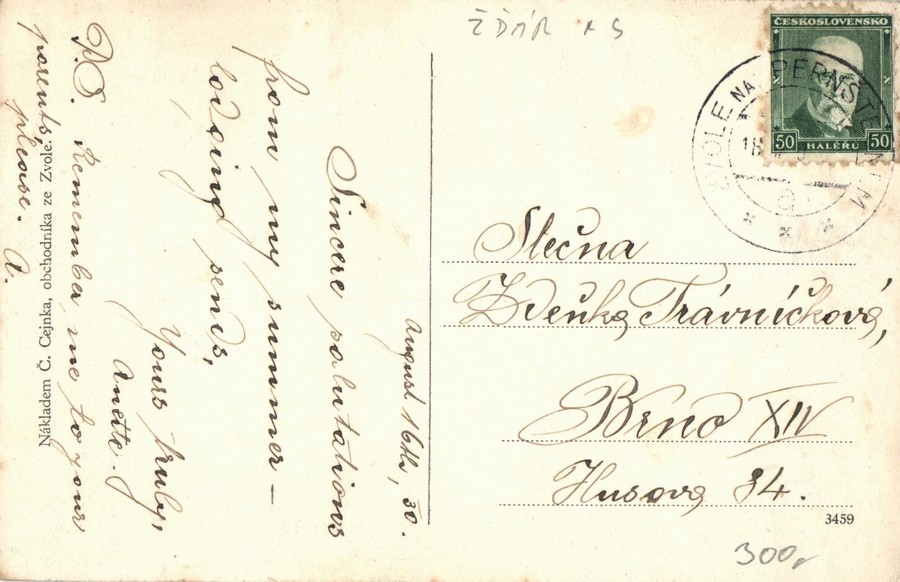 ŽĎÁR n S
ČESKOSLOVENSKO
50 HALÉŘŮ 50
ZVOLE NAD PERNŠTEJNEM
August 16th, 30.
Sincere salutations
from my summer-
lodging sends,
Yours truly,
Anette.
P.S. Remember me to your
parents,
please. A.
Nákladem Č. Cejnka, obchodníka ze Zvole.
Slečna
Zdeňka Trávníčková,
Brno XIV
Husova 34.
3459
300,-